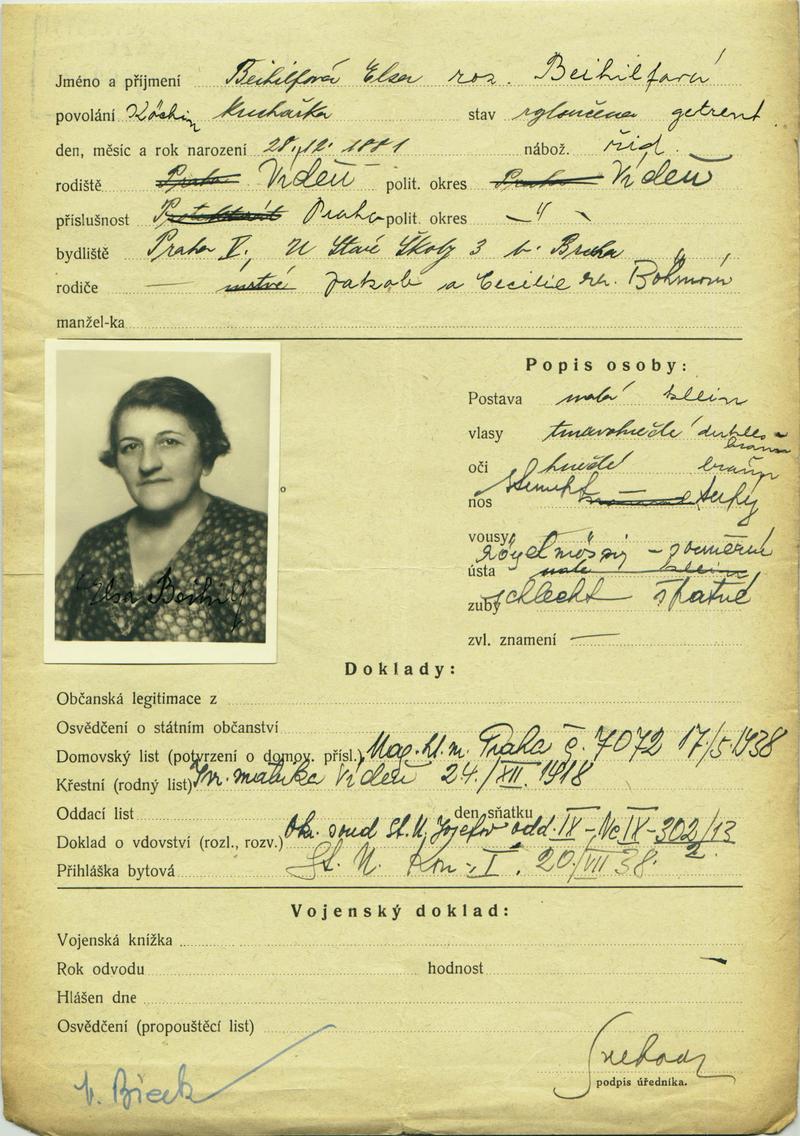 Jméno a příjmení Beihilfová Elsa roz. Beihilfová
povolání Köchin kuchařka stav rozloučena getrennt
den, měsíc a rok narození 28./12. 1881 nábož. žid.
rodiště Praha Vídeň polit. okres Praha Vídeň
příslušnost Protektorát Praha polit. okres — " —
bydliště Praha V., U Staré Školy 3 b.
rodiče — mrtvé Jakob a Cecilie Böhmová
manžel-ka
Popis osoby:
Postava malá klein
vlasy tmavohnědé dunkelbraun
oči hnědé braun
nos stumpf tupý
vousy
ústa regelmässig – souměrné malé klein
zuby schlecht špatné
zvl. znamení —
Elsa Beihilf
Doklady:
Občanská legitimace z
Osvědčení o státním občanství
Domovský list (potvrzení o domov. přísl.) Mag. hl. m. Praha č. 7072 17/5.1938
Křestní (rodný list) Izr. matrika Vídeň 24./XII. 1918
Oddací list den sňatku
Doklad o vdovství (rozl., rozv.) Okr. soud St. M, Josefov odd. IX – Nc IX – 302/13
2
Přihláška bytová St. M. Kom. I. 20/VII 38.
Vojenský doklad:
Vojenská knížka
Rok odvodu hodnost
Hlášen dne
Osvědčení (propouštěcí list)
podpis úředníka.